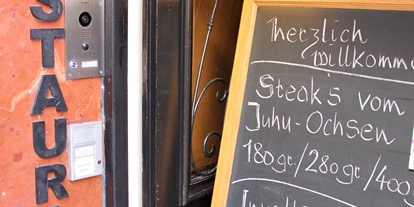 STAUR
herzlich
willkomme
Steaks vom
Juhu-Ochsen
180gr./280gr/400g